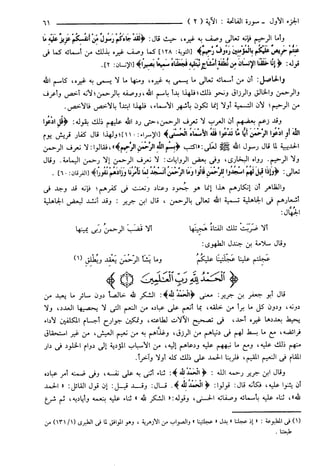 الجزء الأول ـ سورة الفاتحة : الآية ( ٢ ) ٦١
وأما الرحيم فإنه تعالى وصف به غيره، حيث قال: ﴿لَقَدْ جَاءَكُمْ رَسُولٌ مِنْ أَنْفُسِكُمْ عَزِيزٌ عَلَيْهِ مَا
عَنِتُّمْ حَرِيصٌ عَلَيْكُمْ بِالْمُؤْمِنِينَ رَءُوفٌ رَحِيمٌ﴾ (التوبة: ١٢٨) كما وصف غيره بذلك من أسمائه كما في
قوله: ﴿إِنَّا خَلَقْنَا الْإِنْسَانَ مِنْ نُطْفَةٍ أَمْشَاجٍ نَبْتَلِيهِ فَجَعَلْنَاهُ سَمِيعًا بَصِيرًا﴾ (الإنسان: ٢).
والحاصل: أن من أسمائه تعالى ما يسمى به غيره، ومنها ما لا يسمى به غيره، كاسم الله
والرحمن والخالق والرازق ونحو ذلك؛ فلهذا بدأ باسم الله، ووصفه بالرحمن؛ لأنه أخص وأعرف
من الرحيم؛ لأن التسمية أولا إنما تكون بأشهر الأسماء، فلهذا ابتدأ بالأخص فالأخص.
وقد زعم بعضهم أن العرب لا تعرف الرحمن، حتى رد الله عليهم ذلك بقوله: ﴿قُلِ ادْعُوا
اللَّهَ أَوِ ادْعُوا الرَّحْمَنَ أَيًّا مَا تَدْعُوا فَلَهُ الْأَسْمَاءُ الْحُسْنَى﴾ (الإسراء: ١١٠)؛ ولهذا قال كفار قريش يوم
الحديبية لما قال رسول الله ﷺ لعلي: «اكتب ﴿بِسْمِ اللَّهِ الرَّحْمَنِ الرَّحِيمِ﴾»، فقالوا: لا نعرف الرحمن
ولا الرحيم. رواه البخاري، وفي بعض الروايات: لا نعرف الرحمن إلا رحمن اليمامة. وقال
تعالى: ﴿وَإِذَا قِيلَ لَهُمُ اسْجُدُوا لِلرَّحْمَنِ قَالُوا وَمَا الرَّحْمَنُ أَنَسْجُدُ لِمَا تَأْمُرُنَا وَزَادَهُمْ نُفُورًا﴾ (الفرقان: ٦٠).
والظاهر أن إنكارهم هذا إنما هو جحود وعناد وتعنت في كفرهم؛ فإنه قد وجد في
أشعارهم في الجاهلية تسمية الله تعالى بالرحمن، قال ابن جرير: وقد أنشد لبعض الجاهلية
الجهال:
أَلا ضَرَبَتْ تلك الفتاةُ هَجِينَهَا أَلا قَضَبَ الرحمنُ رَبى يمينها
وقال سلامة بن جندل الطهوي:
عَجِلتم علينا عَجْلَتَيْنَا عَلَيْكُم وما يَشَأ الرحمن يَعْقِد ويُطْلِقِ (١)
﴿الْحَمْدُ لِلَّهِ رَبِّ الْعَالَمِينَ﴾
قال أبو جعفر بن جرير: معنى ﴿الْحَمْدُ لِلَّهِ﴾: الشكر لله خالصًا دون سائر ما يعبد من
دونه، ودون كل ما برأ من خلقه، بما أنعم على عباده من النعم التي لا يحصيها العدد، ولا
يحيط بعددها غيره أحد، في تصحيح الآلات لطاعته، وتمكين جوارح أجسام المكلفين لأداء
فرائضه، مع ما بسط لهم في دنياهم من الرزق، وغذاهم به من نعيم العيش، من غير استحقاق
منهم ذلك عليه، ومع ما نبههم عليه ودعاهم إليه، من الأسباب المؤدية إلى دوام الخلود في دار
المقام في النعيم المقيم، فلربنا الحمد على ذلك كله أولا وآخراً.
وقال ابن جرير رحمه الله: ﴿الْحَمْدُ لِلَّهِ﴾: ثناء أثنى به على نفسه، وفي ضمنه أمر عباده
أن يثنوا عليه، فكأنه قال: قولوا: ﴿الْحَمْدُ لِلَّهِ﴾. قال: وقد قيل: إن قول القائل: « الحمد
لله»، ثناء عليه بأسمائه وصفاته الحسنى، وقوله: « الشكر لله » ثناء عليه بنعمه وأياديه، ثم شرع
(١) في المطبوعة : « إذ عجلنا » بدل « عجلتينا » والصواب من الأزهرية ، وهو الموافق لما في الطبري (١/١٣١) من
طبعتنا .